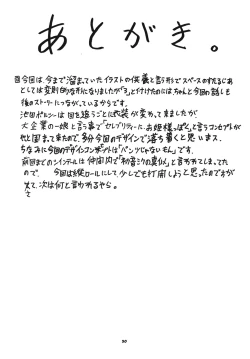 あとがき。
今回は、今まで溜まっていたイラストの供養と言う形でスペースのすたるじあ
としては変則的な形になりましたが「3」と付けたのにはちゃんと今回の話しも
後のストーリーにつながっているからです。
池田ポルシーは回を追うごとに衣装が変わって来ましたが
大企業の一娘と言う事で「セレブリティーに、お姫様っぽく」と言うコンセプトが
やと固まって来たので、多分今回のデザインで落ち着くと思います。
ちなみに今回のデザインコンセプトは「パンツじゃないもん」です。
前回までのツインテールは仲間内で「初音ミクの真似」と言われてしまってた
ので、今回は縦ロールにして少しでも打開しようと思ったのですが
はて、次は何と言われるやら。